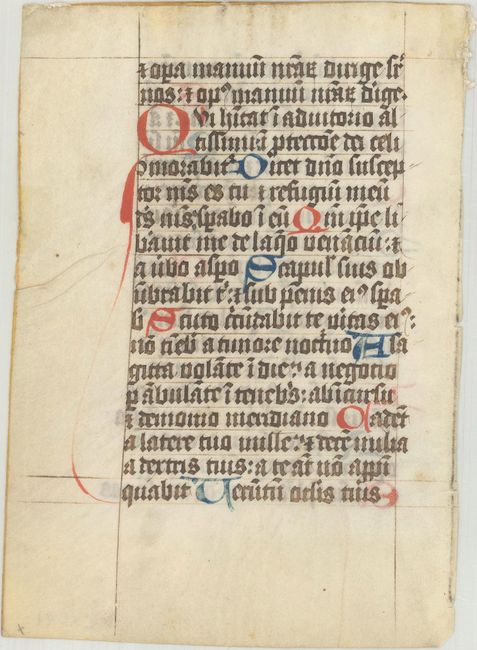 ⁊ opa manuū nr̄aꝝ dirige sr̄
nos: ⁊ opꝰ manuū nr̄aꝝ dige.
Qui hitat ī adiutorio al
tissimi: ptectōe dei celi
ↄmorabit᷑ Dicet dn̄o suscep
tor m̄s es tu ⁊ refugiū meū
dš mš spabo ī eū Qm̄ ip̄e li
bauit me de laqo venāciū: ⁊
a ūbo aspo Scapul̓ suis ob
ūbrabit t̓: ⁊ sub pēnis eiꝰ spa
b̓ Scuto c̄ūdabit te v̓itas eiꝰ:
nō tīeb̓ a timore nocturno A sa
gitta volāte ī die: a negocio
p̱ābulāte ī teneb̓s: ab īcursu
⁊ demonio meridiano Cadēt
a latere tuo mille: ⁊ decē milia
a dextris tuis: a te aūt nō appī
quabit Uerūtn̄ oclis tuis